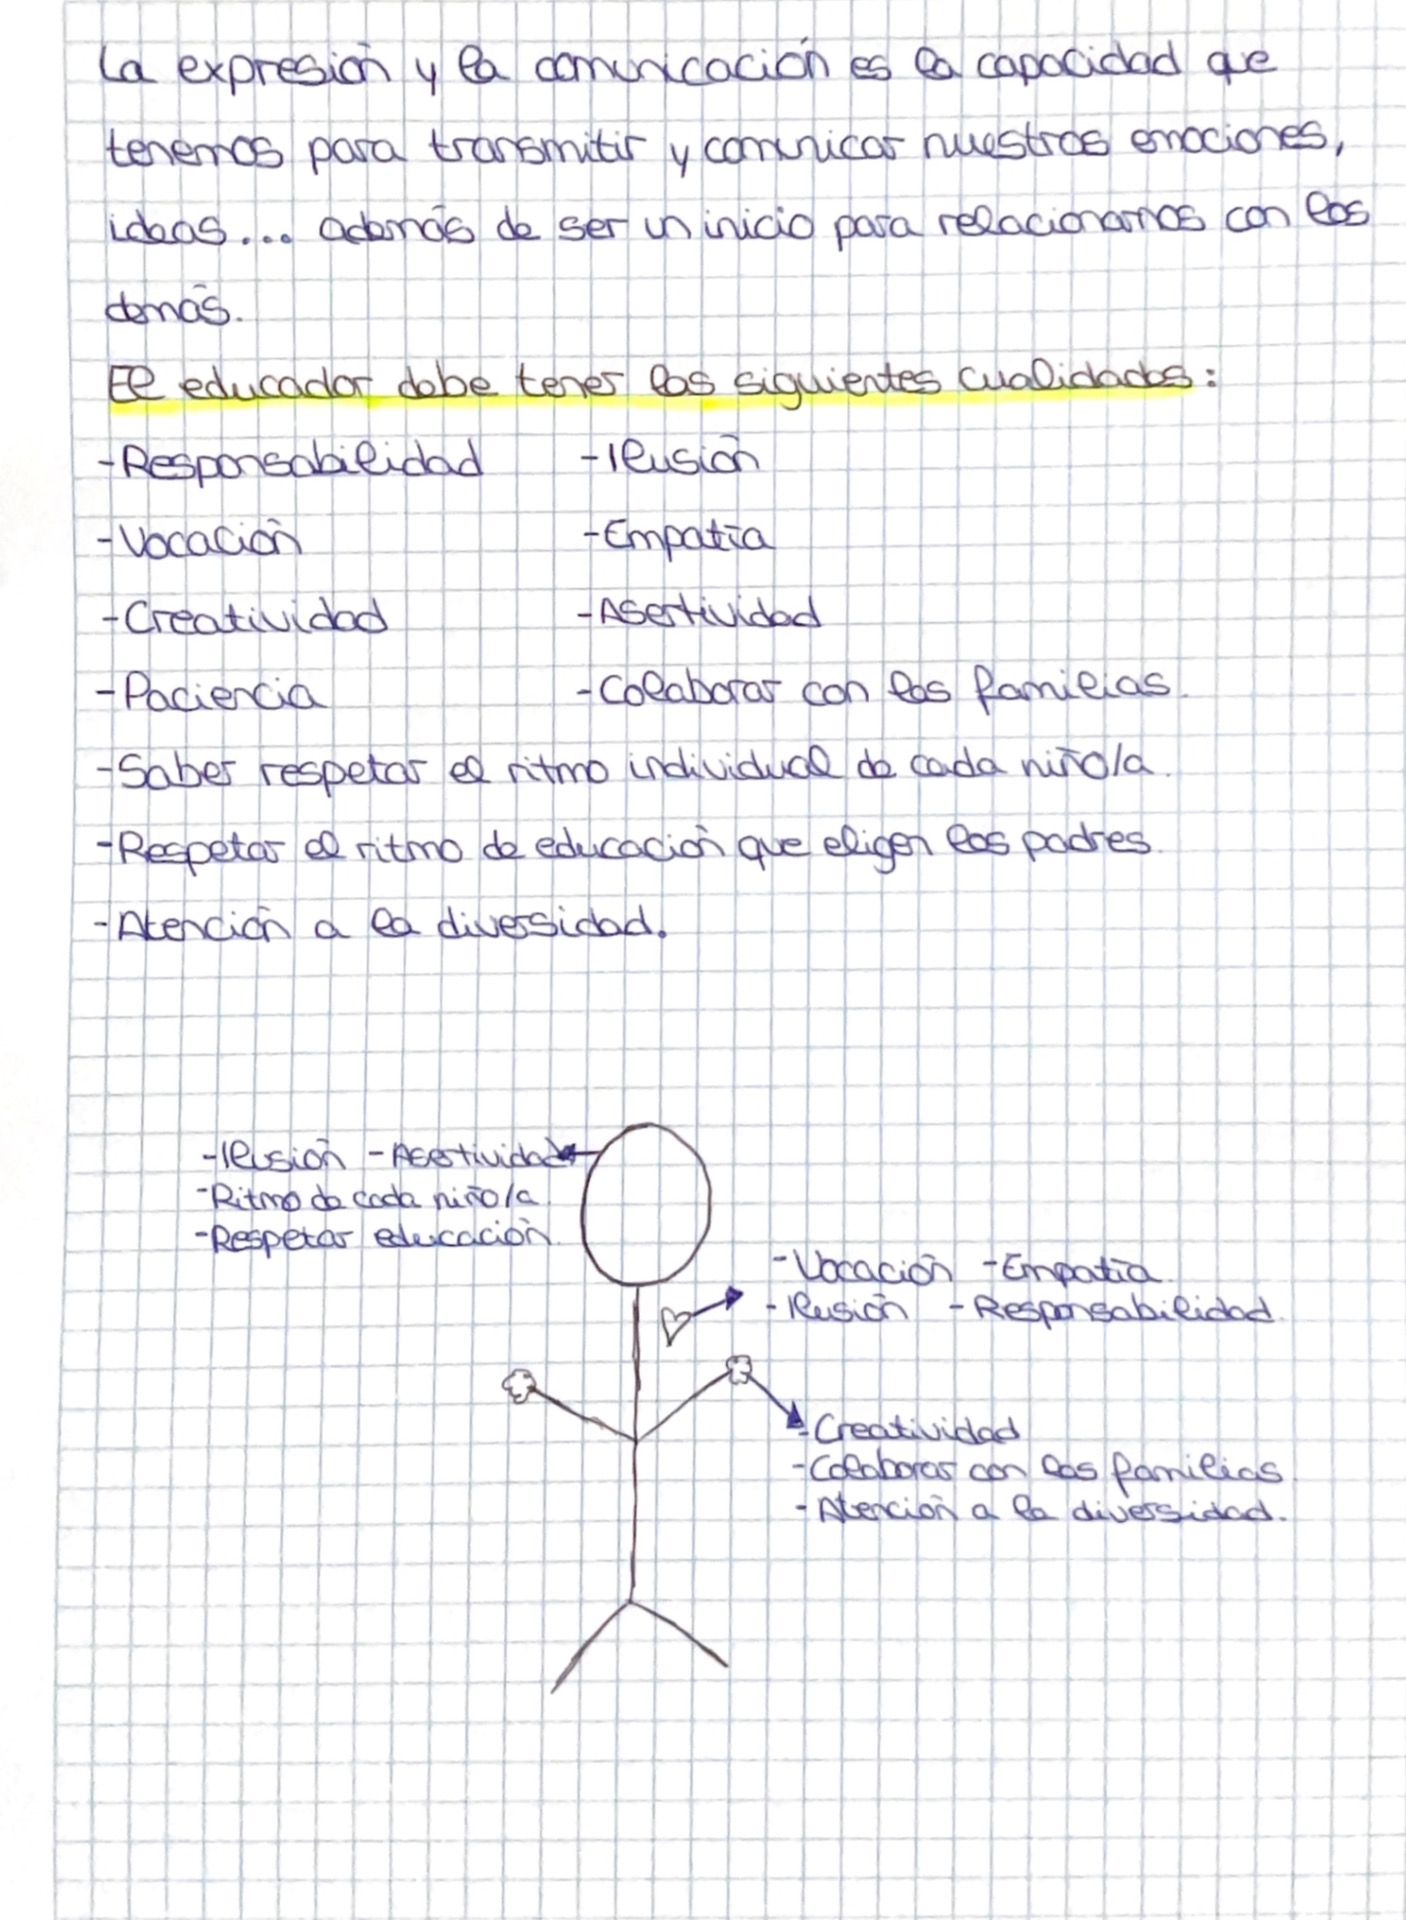 La expresión y la comunicación es la capacidad que
tenemos para transmitir y comunicar nuestras emociones,
ideas... además de ser un inicio para relacionarnos con los
demás.
El educador debe tener las siguientes cualidades:
-Responsabilidad -Ilusión
-Vocación -Empatía
-Creatividad -Asertividad
-Paciencia -Colaborar con las familias.
-Saber respetar el ritmo individual de cada niño/a.
-Respetar el ritmo de educación que eligen los padres.
-Atención a la diversidad.
-Ilusión -Asertividad
-Ritmo de cada niño/a.
-Respetar educación.
-Vocación -Empatía
-Ilusión -Responsabilidad
-Creatividad
-Colaborar con las familias
-Atención a la diversidad.